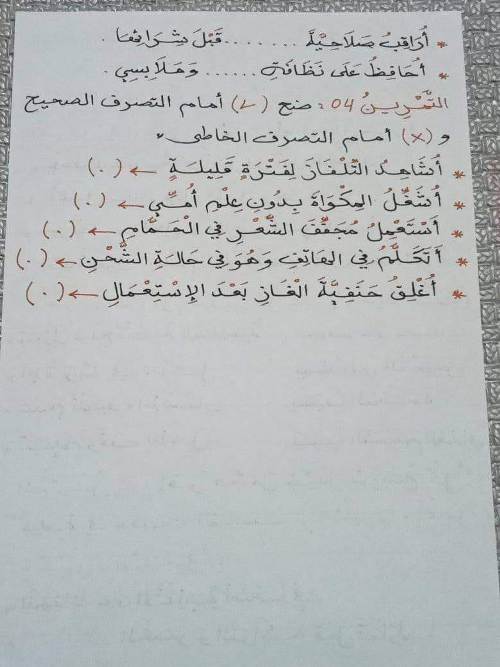 * أُرَاقِبُ صَلَاحِيَّةَ ....... قَبْلَ شِرَائِهَا .
* أُحَافِظُ عَلَى نَظَافَةِ ...... وَمَلَابِسِي .
التَّمْرِينُ 04 : ضع (✓) أمام التصرف الصحيح
و (x) أمام التصرف الخاطئ
* أُشَاهِدُ التِّلْفَازَ لِفَتْرَةٍ قَلِيلَةٍ ← (.)
* أُشَغِّلُ المِكْوَاةَ بِدُونِ عِلْمِ أُمِّي ← (.)
* أَسْتَعْمِلُ مُجَفِّفَ الشَّعْرِ فِي الْحَمَّامِ ← (.)
* أَتَكَلَّمُ فِي الهَاتِفِ وَهُوَ فِي حَالَةِ الشَّحْنِ ← (.)
* أُغْلِقُ حَنَفِيَّةَ الْغَازِ بَعْدَ الِاسْتِعْمَالِ ← (.)